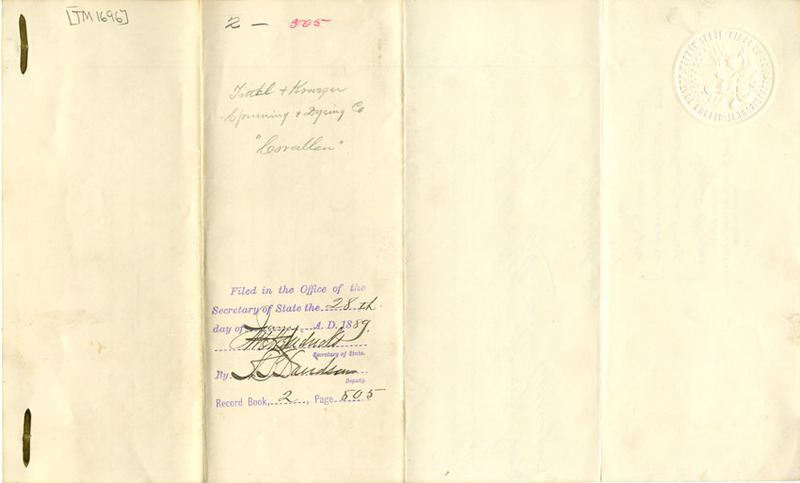 [TM 1696]
2 - 505
& Krueger
Spinning & Dyeing Co
"Corallen"
Filed in the Office of the
Secretary of State the 28th
day of June A. D. 1889.
Secretary of State.
By Davidson
Deputy.
Record Book, 2, Page 505